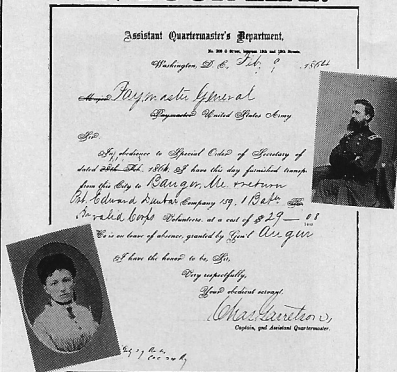 Assistant Quartermaster's Department,
No. 200 G Street, between 18th and 19th Streets.
Washington, D. C. Feb. 9 1864
Paymaster General
Paymaster United States Army
Sir:
In obedience to Special Order of Secretary of
dated Feb. 1864, I have this day furnished transp.
from this City to Bangor, Me. & return
Pvt. Edward Company 159, 1 Batt
Invalid Corps Volunteers, at a cost of $29 08
He is on leave of absence, granted by Gen'l Augur
I have the honor to be, Sir,
Very respectfully,
Your obedient servant,
Chas. Garretson,
Captain, and Assistant Quartermaster.